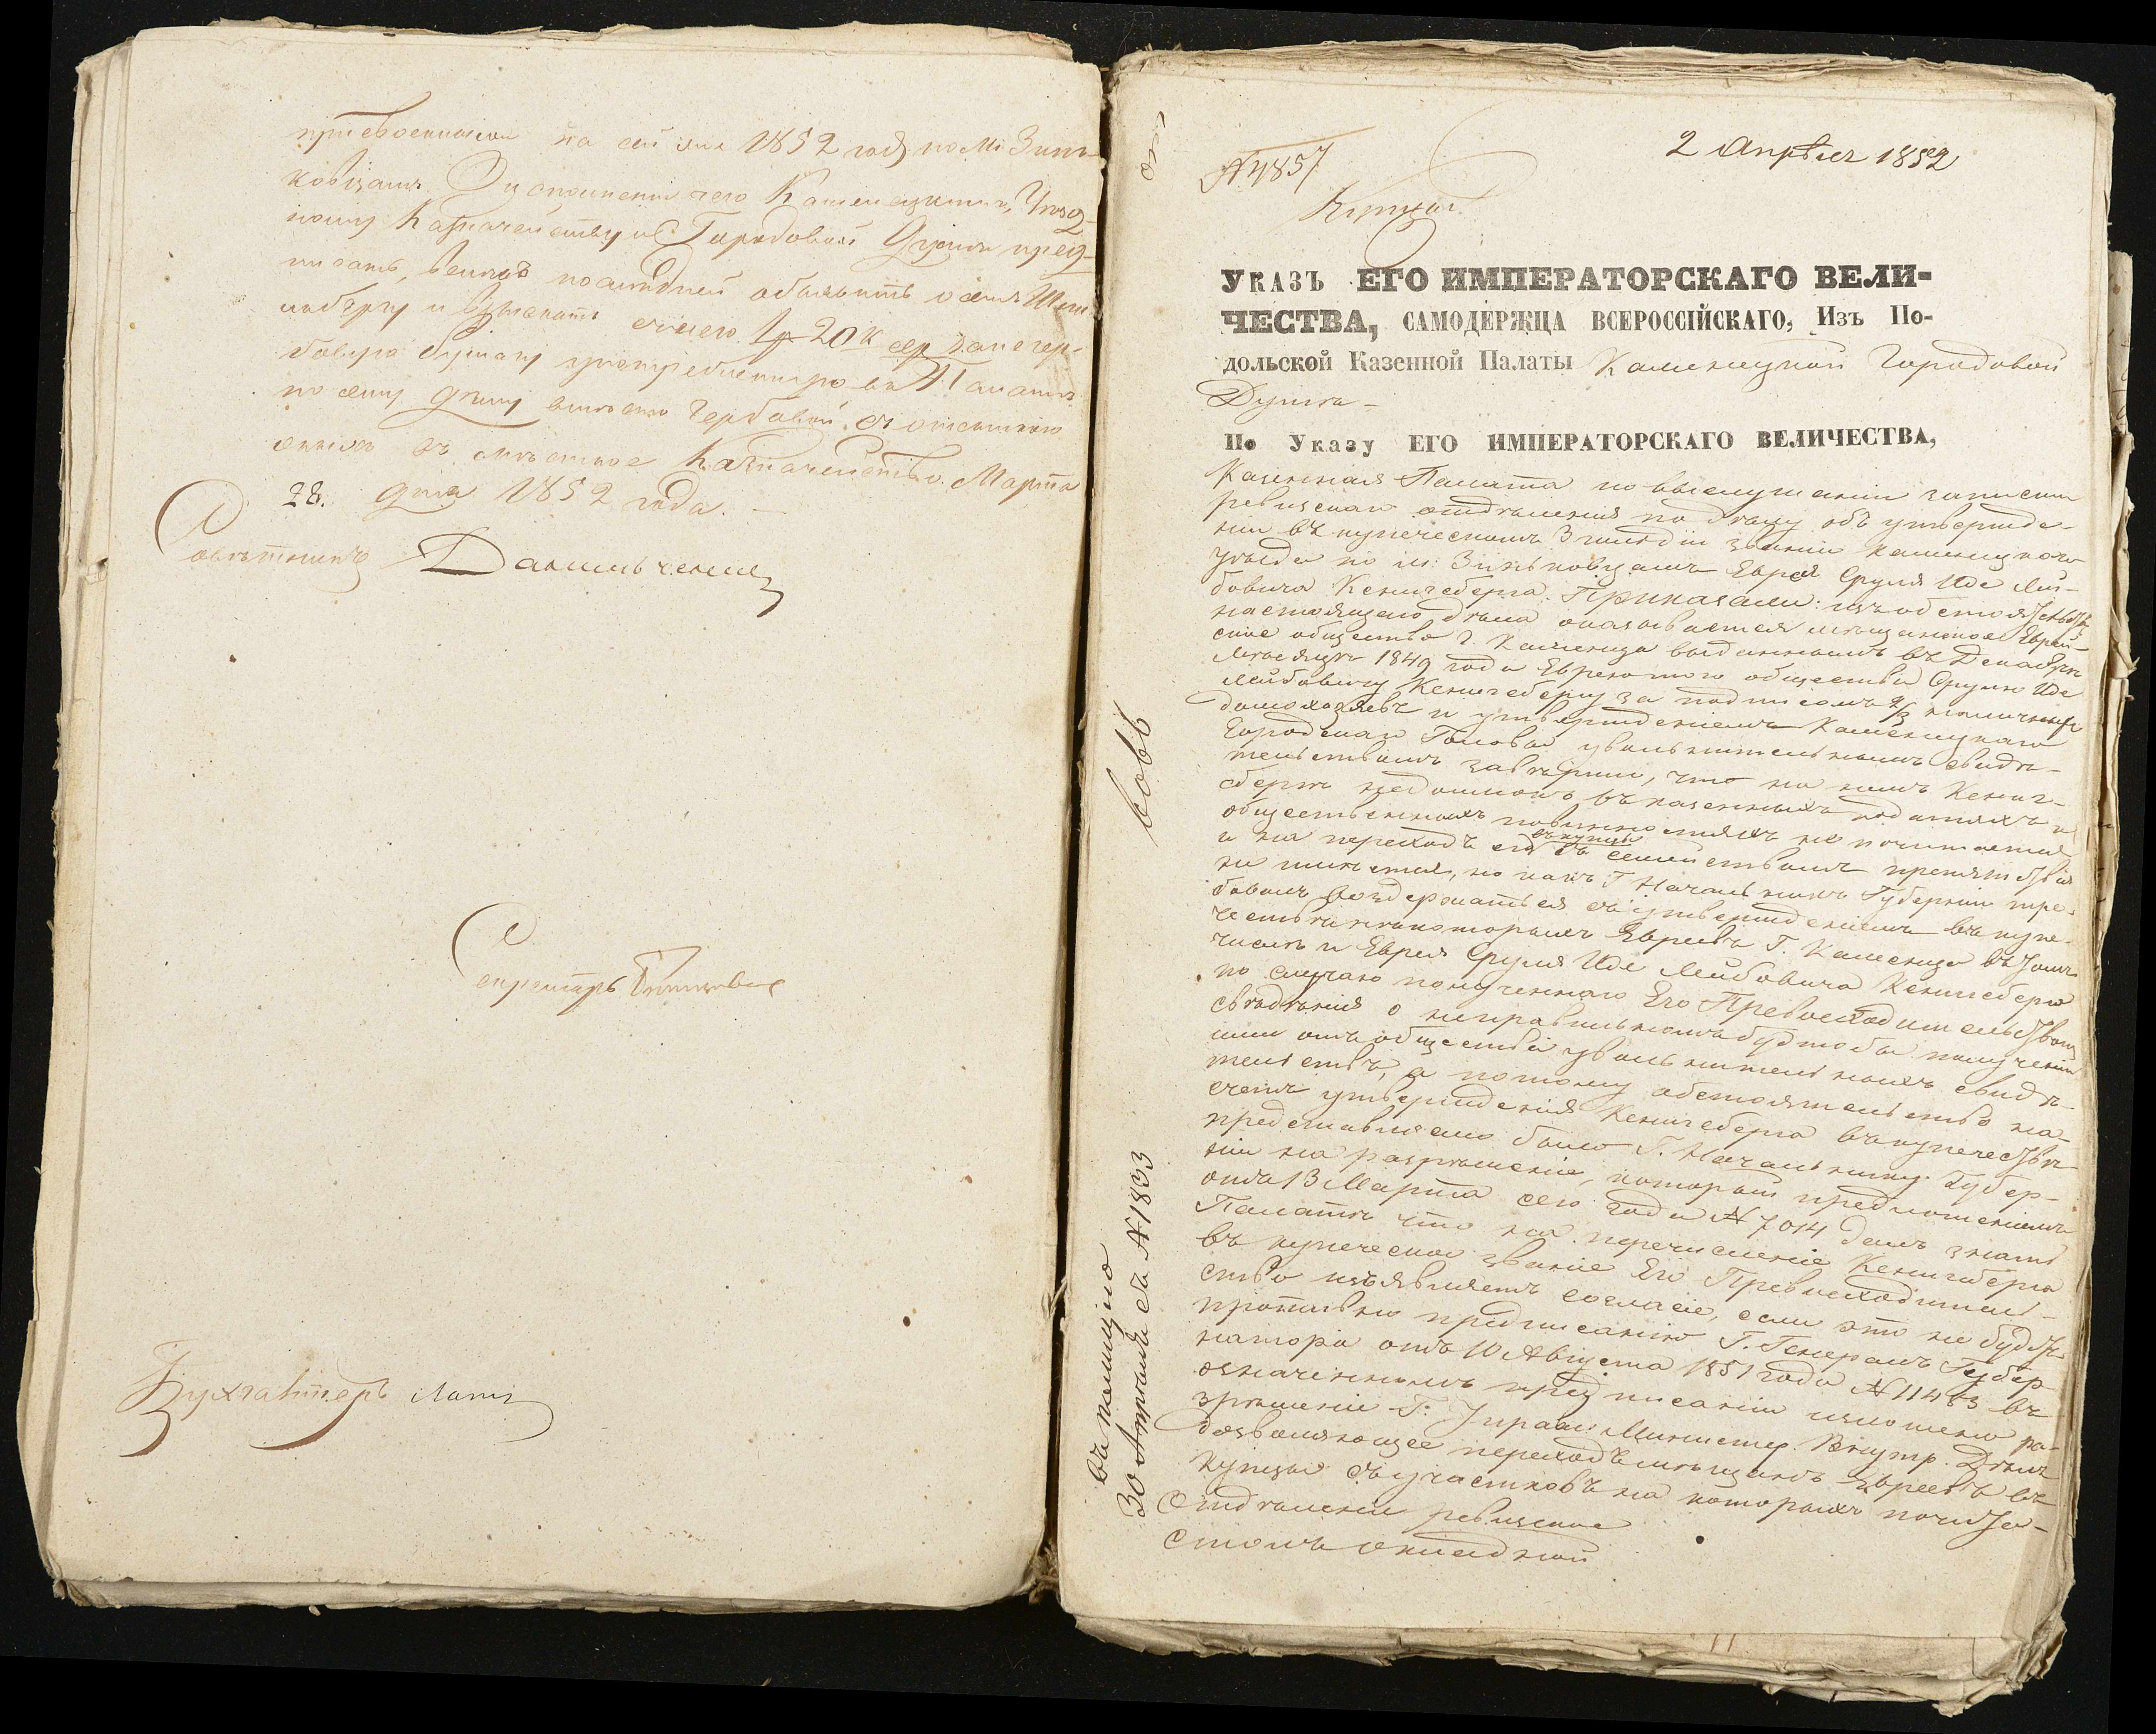 присвоенными на сей имя 1852 годъ по м: Зинь-
ковцамъ. О исполненіи чего Каменецкому Уезд-
ному Казначейству и Городовой Думѣ пред-
писать, велѣвъ последней объявить о семъ
и взыскать съ него 1 р 20 к сер. за гер-
бовую бумагу употребленную въ Палатѣ
по сему дѣлу вмѣсто гербовой, съ отсылкою
оныхъ въ мѣстное Казначейство. Марта
28. дня 1852 года. —
Совѣтникъ Данильченко
Секретарь
Бухгалтеръ
№ 4857
2 Апрѣля 1852
Указъ ЕГО ИМПЕРАТОРСКАГО ВЕЛИ-
ЧЕСТВА, САМОДЕРЖЦА ВСЕРОССІЙСКАГО, Изъ По-
дольской Казенной Палаты Каменецкой Городовой
Думѣ —
По Указу ЕГО ИМПЕРАТОРСКАГО ВЕЛИЧЕСТВА,
Казенная Палата по выслушаніи записки
ревизскаго отдѣленія по дѣлу объ утвержде-
ніи въ купеческомъ 3 гильдіи званіи каменецкаго
уѣзда по м: Зиньковцамъ Еврея Сруля Иде Лей-
бовича Кенигсберга. Приказали: изъ обстоятельствъ
настоящаго дѣла оказывается мѣщанское Еврей-
ское общество г. Каменца выданнымъ въ Декабрѣ
мѣсяцѣ 1849 года Еврею того общества Срулю Иде
Лейбовичу Кенигсбергу за подписомъ 2/3 наличныхъ
домохозяевъ и утвержденіемъ Каменецкаго
Городскаго Головы увольнительнымъ свидѣ-
тельствомъ завѣрили, что на немъ Кениг-
сбергѣ недоимокъ въ казенныхъ податяхъ и
общественныхъ повинностяхъ не почитается
и на переходъ его въ купцы съ семействомъ препятствія
не имѣется, но какъ Г. Начальникъ Губерніи тре-
бовалъ воздержаться съ утвержденіемъ въ купе-
чествѣ нѣкоторыхъ Евреевъ Г. Каменца въ томъ
числѣ и Еврея Сруля Иде Лейбовича Кенигсберга
по случаю полученнаго Его Превосходительствомъ
свѣдѣнія о неправильномъ будтобы полученіи
ими отъ общества увольнительныхъ свидѣ-
тельствъ, а потому обстоятельство на-
счетъ утвержденія Кенигсберга въ купечествѣ
представлено было Г. Начальнику Губер-
ніи на разрѣшеніе, который предложеніемъ
отъ 13 Марта сего года № 7014 далъ знать
Палатѣ что на перечисленіе Кенигсберга
въ купеческое званіе Его Превосходитель-
ство изъявляетъ согласіе, если это не будетъ
противно предписанію Г. Генералъ Губер-
натора отъ 10 Августа 1851 года № 11463 въ
означенномъ предписаніи изложено ра-
зрѣшеніе Г. Управл: Министер. Внутр. Дѣлъ
дозволяющее переходъ мѣщанъ Евреевъ въ
купцы съ участковъ на которыхъ почита-
Отдѣленіе ревизское
Столъ окладной
30 Апрѣля съ № 1833